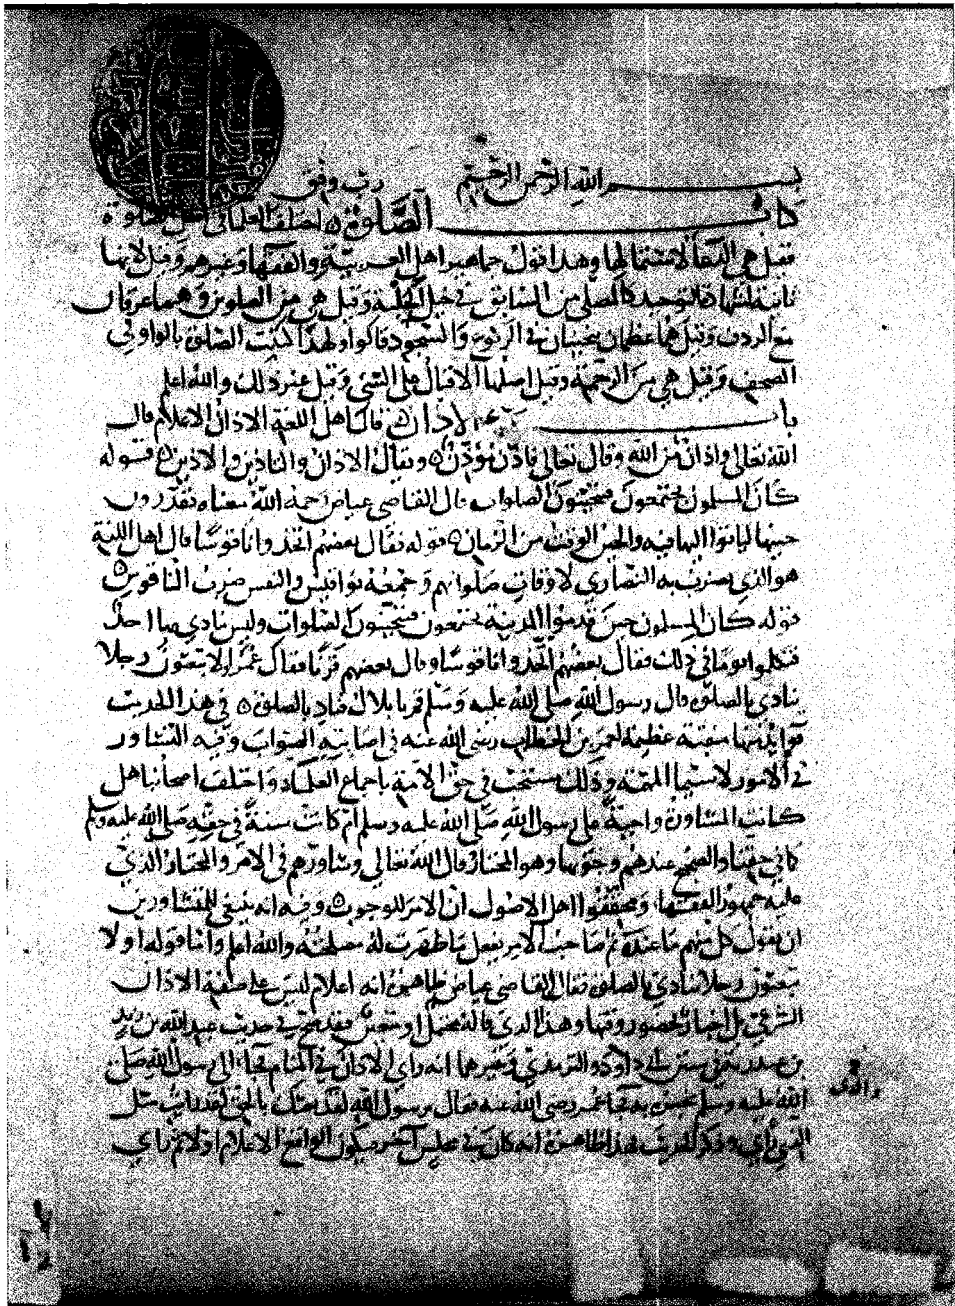 بسم الله الرحمن الرحيم رب وفق
كتاب الصلوة اختلف العلماء في اصل الصلوة
فقيل هي الدعاء لاشتمالها وهذا قول جماهير اهل العربية والفقهاء وغيرهم وقيل لانها
ثانية لشهادة التوحيد كالمصلي من السابق في خيل الحلبة وقيل هي من الصلوين وهما عرقان
مع الردف وقيل هما عظمان ينحنيان في الركوع والسجود قالوا ولهذا كتبت الصلوة بالواو في
المصحف وقيل هي من الرحمة وقيل اصلها الاقبال على الشئ وقيل غير ذلك والله اعلم
باب الاذان قال اهل اللغة الاذان الاعلام قال
الله تعالى واذان من الله وقال تعالى فاذن مؤذن ويقال الاذان والتاذين والاذين قوله
كان المسلمون يجتمعون فيتحينون الصلوات قال القاضي عياض رحمه الله معناه يقدرون
حينها لياتوا اليها فيه والحين الوقت من الزمان قوله فقال بعضهم اتخذوا ناقوسا قال اهل اللغة
هو الذي يضرب به النصارى لاوقات صلواتهم وجمعه نواقيس والنقس ضرب الناقوس
قوله كان المسلمون حين قدموا المدينة يجتمعون فيتحينون الصلوات وليس ينادي بها احد
فتكلموا يوما في ذلك فقال بعضهم اتخذوا ناقوسا وقال بعضهم قرنا فقال عمر اولا تبعثون رجلا
ينادي بالصلوة قال رسول الله صلى الله عليه وسلم قم يا بلال فناد بالصلوة في هذا الحديث
فوائد منها منقبة عظيمة لعمر بن الخطاب رضي الله عنه في اصابته الصواب وفيه التشاور
في الامور لاسيما المهمة وذلك مستحب في حق الامة باجماع العلماء واختلف اصحابنا هل
كانت المشاورة واجبة على رسول الله صلى الله عليه وسلم ام كانت سنة في حقه صلى الله عليه وسلم
كما في حقنا والصحيح عندهم وجوبها وهو المختار قال الله تعالى وشاورهم في الامر والمختار الذي
عليه جمهور الفقهاء ومحققوا اهل الاصول ان الامر للوجوب وفيه انه ينبغي للمتشاورين
ان يقول كل منهم ما عنده ثم صاحب الامر يفعل ما ظهرت له مصلحته والله اعلم واما قوله اولا
تبعثون رجلا ينادي بالصلوة فقال القاضي عياض ظاهره انه اعلام ليس على صفة الاذان
الشرعي بل اخبار بحضور وقتها وهذا الذي قاله محتمل او متعين فقد صح في حديث عبد الله بن زيد
بن عبد ربه في سنن ابي داود والترمذي وغيرهما انه راي الاذان في المنام فجاء الى رسول الله صلى
الله عليه وسلم يخبره به فجاء عمر رضي الله عنه فقال يرسول الله لقد رايت مثل
الذي راي وذكر الحديث فهذا ظاهره انه كان في مجلس اخر فيكون الواقع الاعلام اولا ثم راي